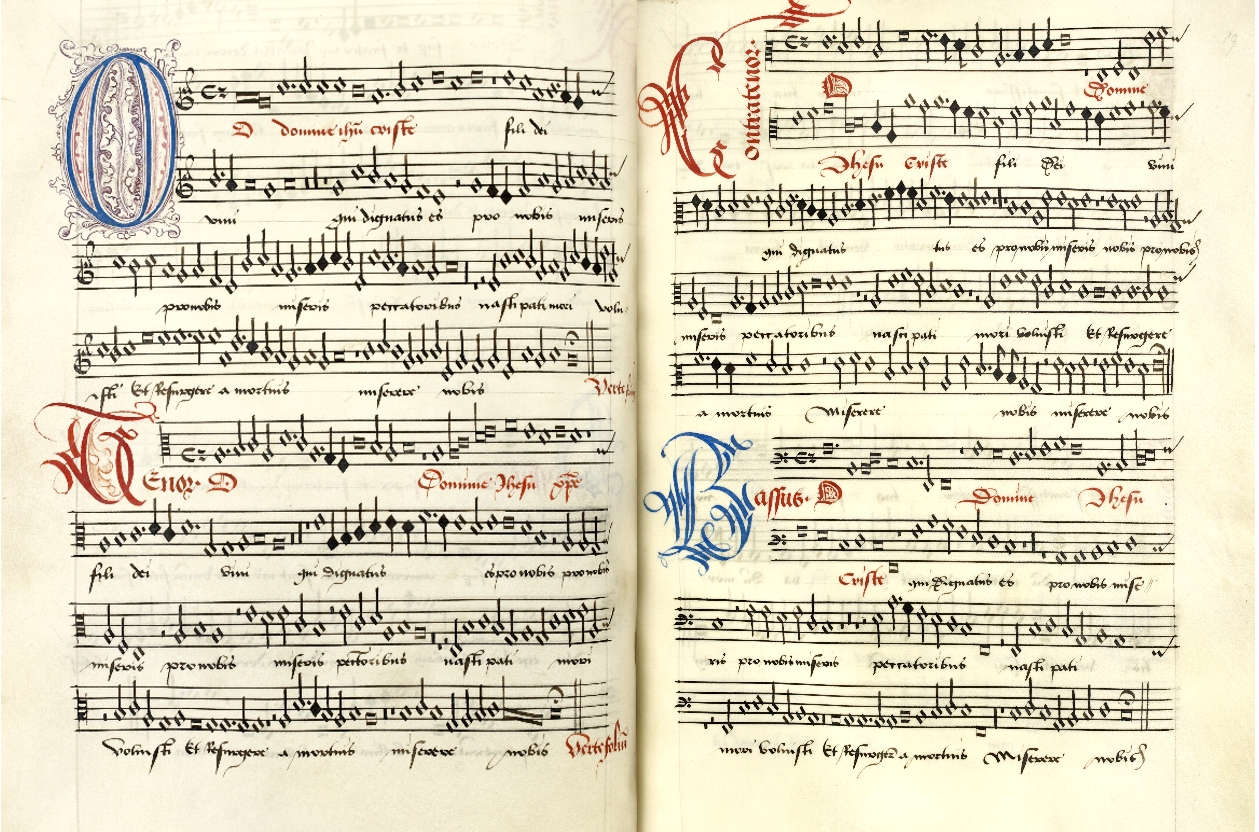 O domine ihu criste fili dei
viui qui dignatus es pro nobis miseris
pro nobis miseris peccatoribus nasci pati mori volu
isti Et Resurgere a mortuis miserere nobis Verte
Tenor O Domine Jhesu xpe
fili dei viui qui dignatus es pro nobis pro nobis
miseris pro nobis miseris pectoribus nasci pati mori
voluisti Et Resurgere a mortuis miserere nobis Verte foliu
19
Contratenor O Domine
Jhesu Criste fili Dei viui
qui dignatus tus es pro nobis miseris nobis pro nobis
miseris peccatoribus nasci pati mori voluisti Et Resurgere
a mortuis Miserere nobis miserere nobis
Bassus O Domine Jhesu
Criste qui Dignatus es pro nobis mise
ris pro nobis miseris peccatoribus nasci pati
mori voluisti Et Resurgere a mortuis Miserere nobis